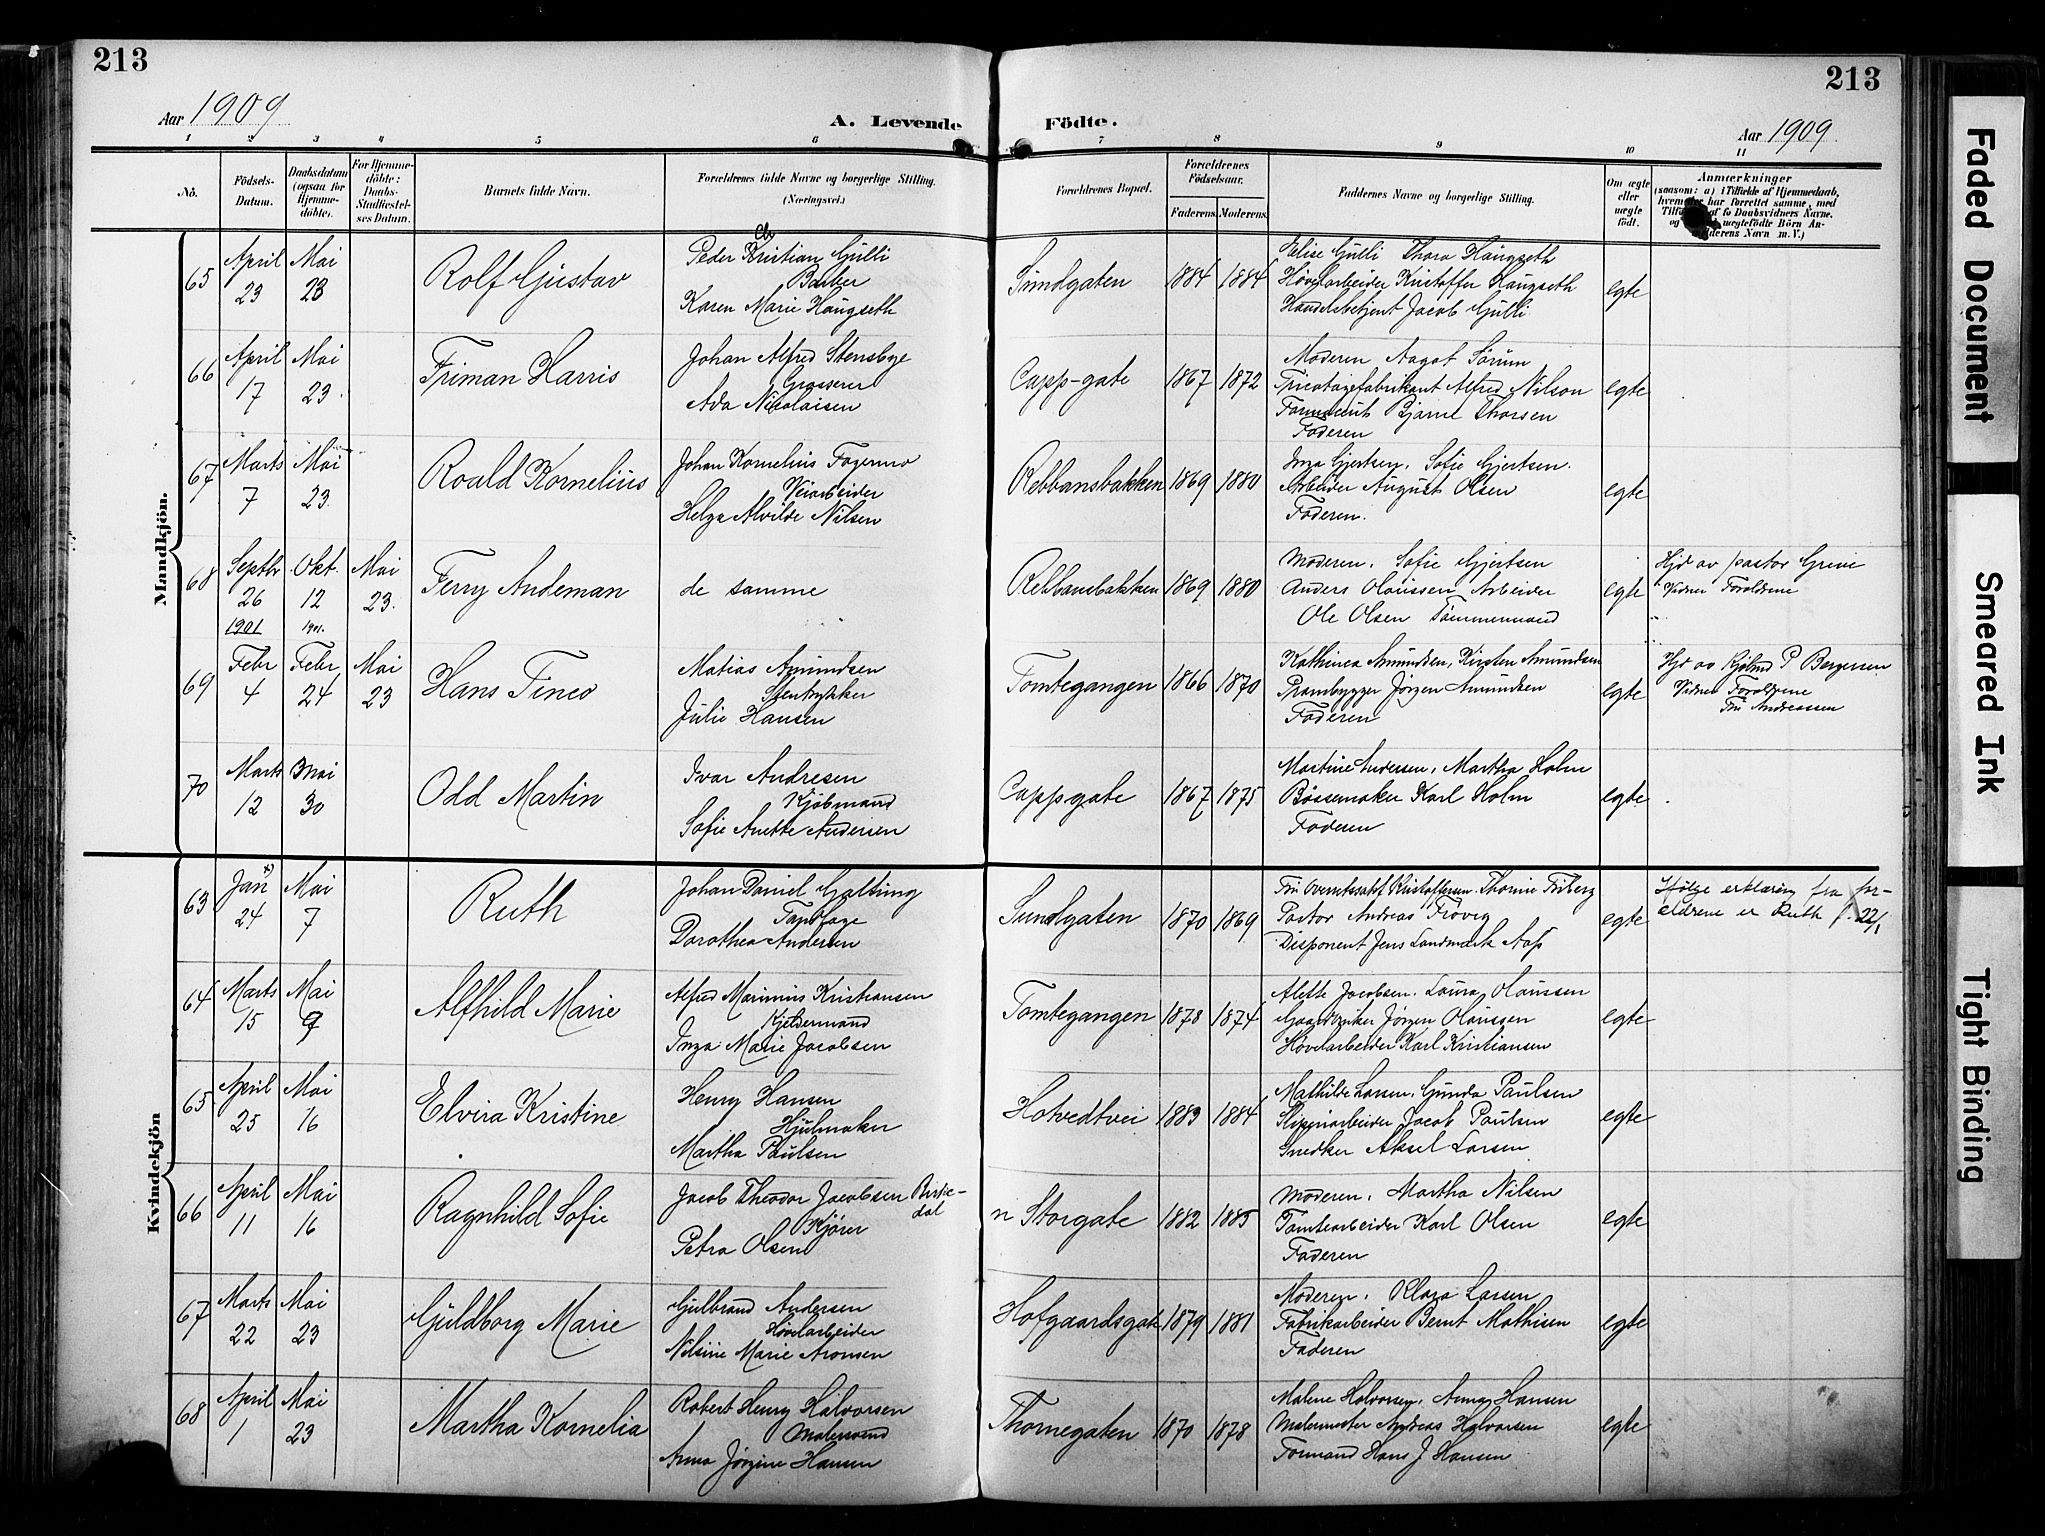 213
213
Aar 1909
A. Levende Födte.
Aar 1909.
1 2 3 4 5 6 7 8 9 10 11
No.
Födsels-Datum.
Daabsdatum (ogsaa for Hjemme-döbte).
For Hjemme-döbte: Daabs-Stadfæstel-ses Datum.
Barnets fulde Navn.
Forældrenes fulde Navne og borgerlige Stilling.
(Næringsvei.)
Forældrenes Bopæl.
Forældrenes Födselsaar.
Faderens. Moderens.
Faddernes Navne og borgerlige Stilling.
Om ægte eller uægte födt.
Anmærkninger
(saasom: a) i Tilfælde af Hjemmedaab,
har forrettet samme, med
af to Daabsvidners Navne.
og uægtefödte Börn An-
Navn m. V.)
Mandkjön.
65 April 23 Mai 23 Rolf Gustav
Peder Kristian Gulli
Ch
Barber
Karen Marie Haugseth
Sundgaten 1884 1884
Elise Gulli Thora Haugseth
Høvelarbeider Kristoffer Haugseth
Handelsbetjent Jacob Gulli
egte
66 April 17 Mai 23. Friman Harris
Johan Alfred Stensbye
Grosserer
Ada Nikolaisen
Capp-gate 1867 1872
Moderen Aagot Sørum
Tricotagefabrikant Alfred Nilson
Bjarne Thorsen
Faderen
egte
67 Marts 7 Mai 23. Roald Kornelius
Johan Kornelius Fagermo
Veiarbeider
Helga Alvilde Nilsen
Rebbansbakken 1869 1880
Inga Gjertsen. Sofie Gjertsen.
Arbeider August Olsen
Faderen.
egte
68 Septbr 26 1901 Okt. 12 1901. Mai 23. Ferry Andeman
de samme
Rebbansbakken 1869 1880
Moderen. Sofie Gjertsen
Anders Olaussen Arbeider
Ole Olsen Tømmermand
egte
Hjd av pastor Greve
Vidner Forældrene
69 Febr 4 Febr 24 Mai 23 Hans Tineo
Matias Amundsen
Stentrykker
Julie Hansen
Tomtegangen 1866 1870
Kathinea Amundsen, Kirsten Amundsen
Prambygger Jørgen Amundsen
Faderen
egte
Hjd av Kjøbmd P Bergersen
Vidner Forældrene
Fru Andreassen
70 Marts 12 Mai 30 Odd Martin
Ivar Andresen
Kjøbmand
Sofie Anette Andersen
Cappsgate 1867 1875
Martine Andersen, Martha Holm
Bøssemaker Karl Holm
Faderen
egte
Kvindekjön
63 Jan x) 24 Mai 7 Ruth
Johan Daniel Galtung
Tandlæge
Dorothea Andersen
Sundgaten 1870 1869
Fru Overretssakf Kristoffersen. Thomine Friberg
Pastor Andreas Frøvig
Disponent Jens Landmark Aas
egte
Ifølge erklæring fra for-
ældrene er Ruth f. 22/1
64 Marts 15 Mai 9 Alfhild Marie
Alfred Marinius Kristiansen
Kjeldermand
Inga Marie Jacobsen
Tomtegangen 1878 1874
Alette Jacobsen. Laura Olaussen
Gaardbruker Jørgen Olaussen
Høvelarbeider Karl Kristiansen
egte
65 April 25 Mai 16 Elvira Kristine
Henry Hansen
Hjulmaker
Martha Paulsen
Hotvedtvei 1883 1884
Mathilde Larsen, Gunda Paulsen
Sliperiarbeider Jacob Paulsen
Snedker Aksel Larsen
egte
66 April 11 Mai 16 Ragnhild Sofie
Jacob Theodor Jacobsen Birke-
dal
Kjører
Petra Olsen
n Storgate 1882 1885
Moderen. Martha Nilsen
Tomtearbeider Karl Olsen
Faderen
egte
67 Marts 22 Mai 23 Guldborg Marie
Gulbrand Andersen
Høvelarbeider
Nilsine Marie Aronsen
Hofgaardsgate 1879 1881
Moderen. Klara Larsen
Fabrikarbeider Bernt Mathisen
Faderen
egte
68 April 1 Mai 23 Martha Kornelia
Robert Henry Halvorsen
Malersvend
Anna Jørgine Hansen
Thornegaten 1870 1878
Malene Halvorsen, Anna Hansen
Malermester Andreas Halvorsen
Formand Hans J Hansen
egte
Faded Document
Smeared Ink
Tight Binding